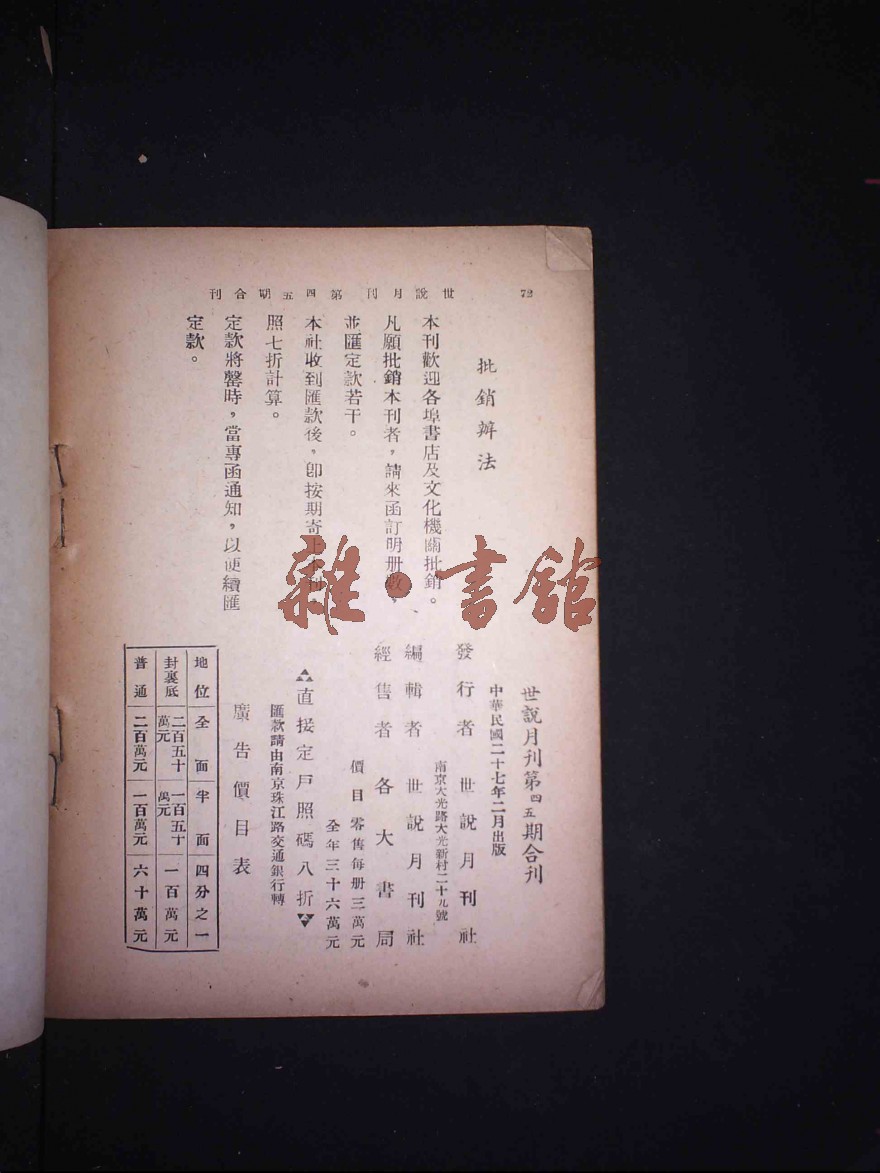 72
世說月刊 第四五期合刊
批銷辦法
本刊歡迎各埠書店及文化機關批銷。
凡願批銷本刊者，請來函訂明册數，
並匯定款若干。
本社收到匯款後，即按期寄上本刊
照七折計算。
定款將罄時，當專函通知，以便續匯
定款。
世説月刊第四五期合刊
中華民國二十七年二月出版
發行者 世說月刊社
南京大光路大光新村二十九號
編輯者 世說月刊社
經售者 各大書局
價目 零售每册三萬元
全年三十六萬元
直接定戶照碼八折
匯款請由南京珠江路交通銀行轉
廣告價目表
地位 全面 半面 四分之一
封裏底 二百五十萬元 一百五十萬元 一百萬元
普通 二百萬元 一百萬元 六十萬元
雜·書館